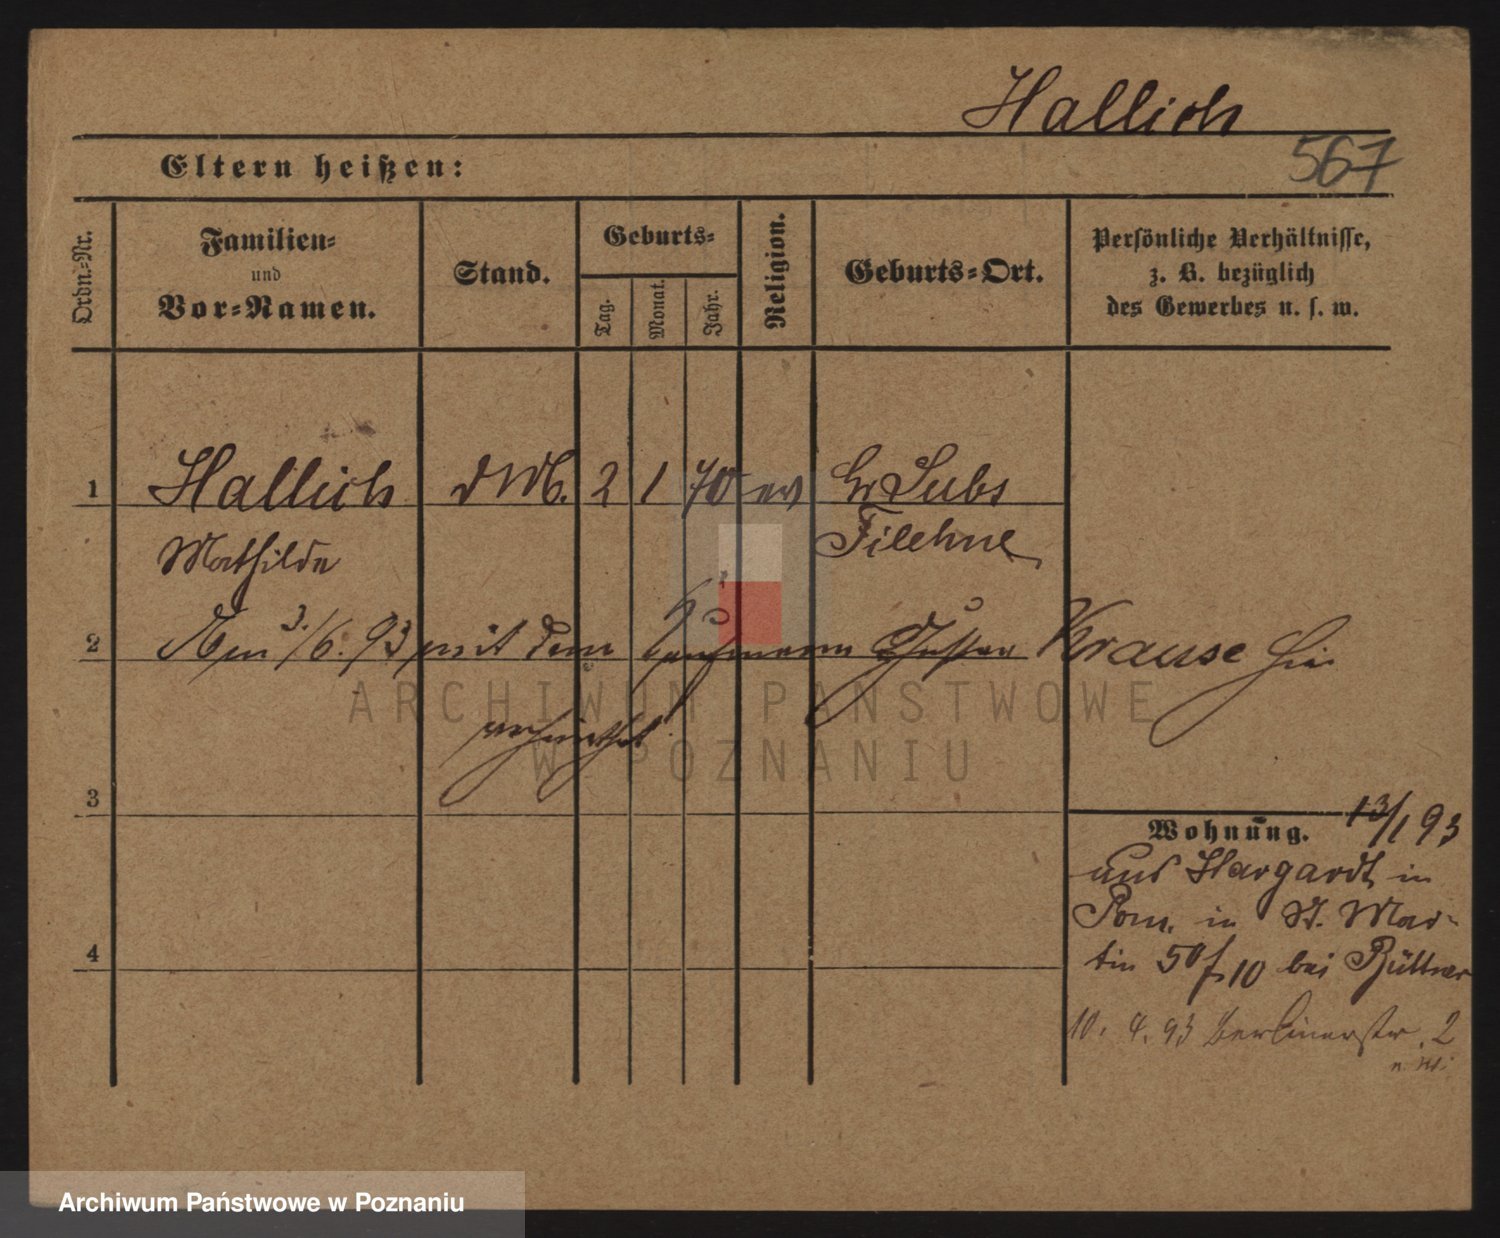 Hallich
Eltern heißen:
567
Ordn.-Nr.
Familien-
und
Vor-Namen.
Stand.
Geburts-
Tag.
Monat.
Jahr.
Religion.
Geburts-Ort.
Persönliche Verhältnisse,
z. B. bezüglich
des Gewerbes u. s. w.
1 Hallich 2 1 70 ev Gr Lubs
Mathilde Filehne
2 Am 3./6. 93 mit dem Kaufmann Gustav Krause hier
verheirathet
3
Wohnung. 13/1 93
aus Stargardt in
Pom. in St. Mar-
tin 50/10 bei Büttner
4
10. 4. 93 Berlinerstr. 2
ARCHIWUM PAŃSTWOWE
W POZNANIU
Archiwum Państwowe w Poznaniu